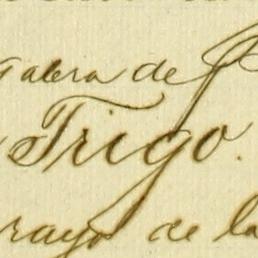 galera de
Trigo.
rayos de la